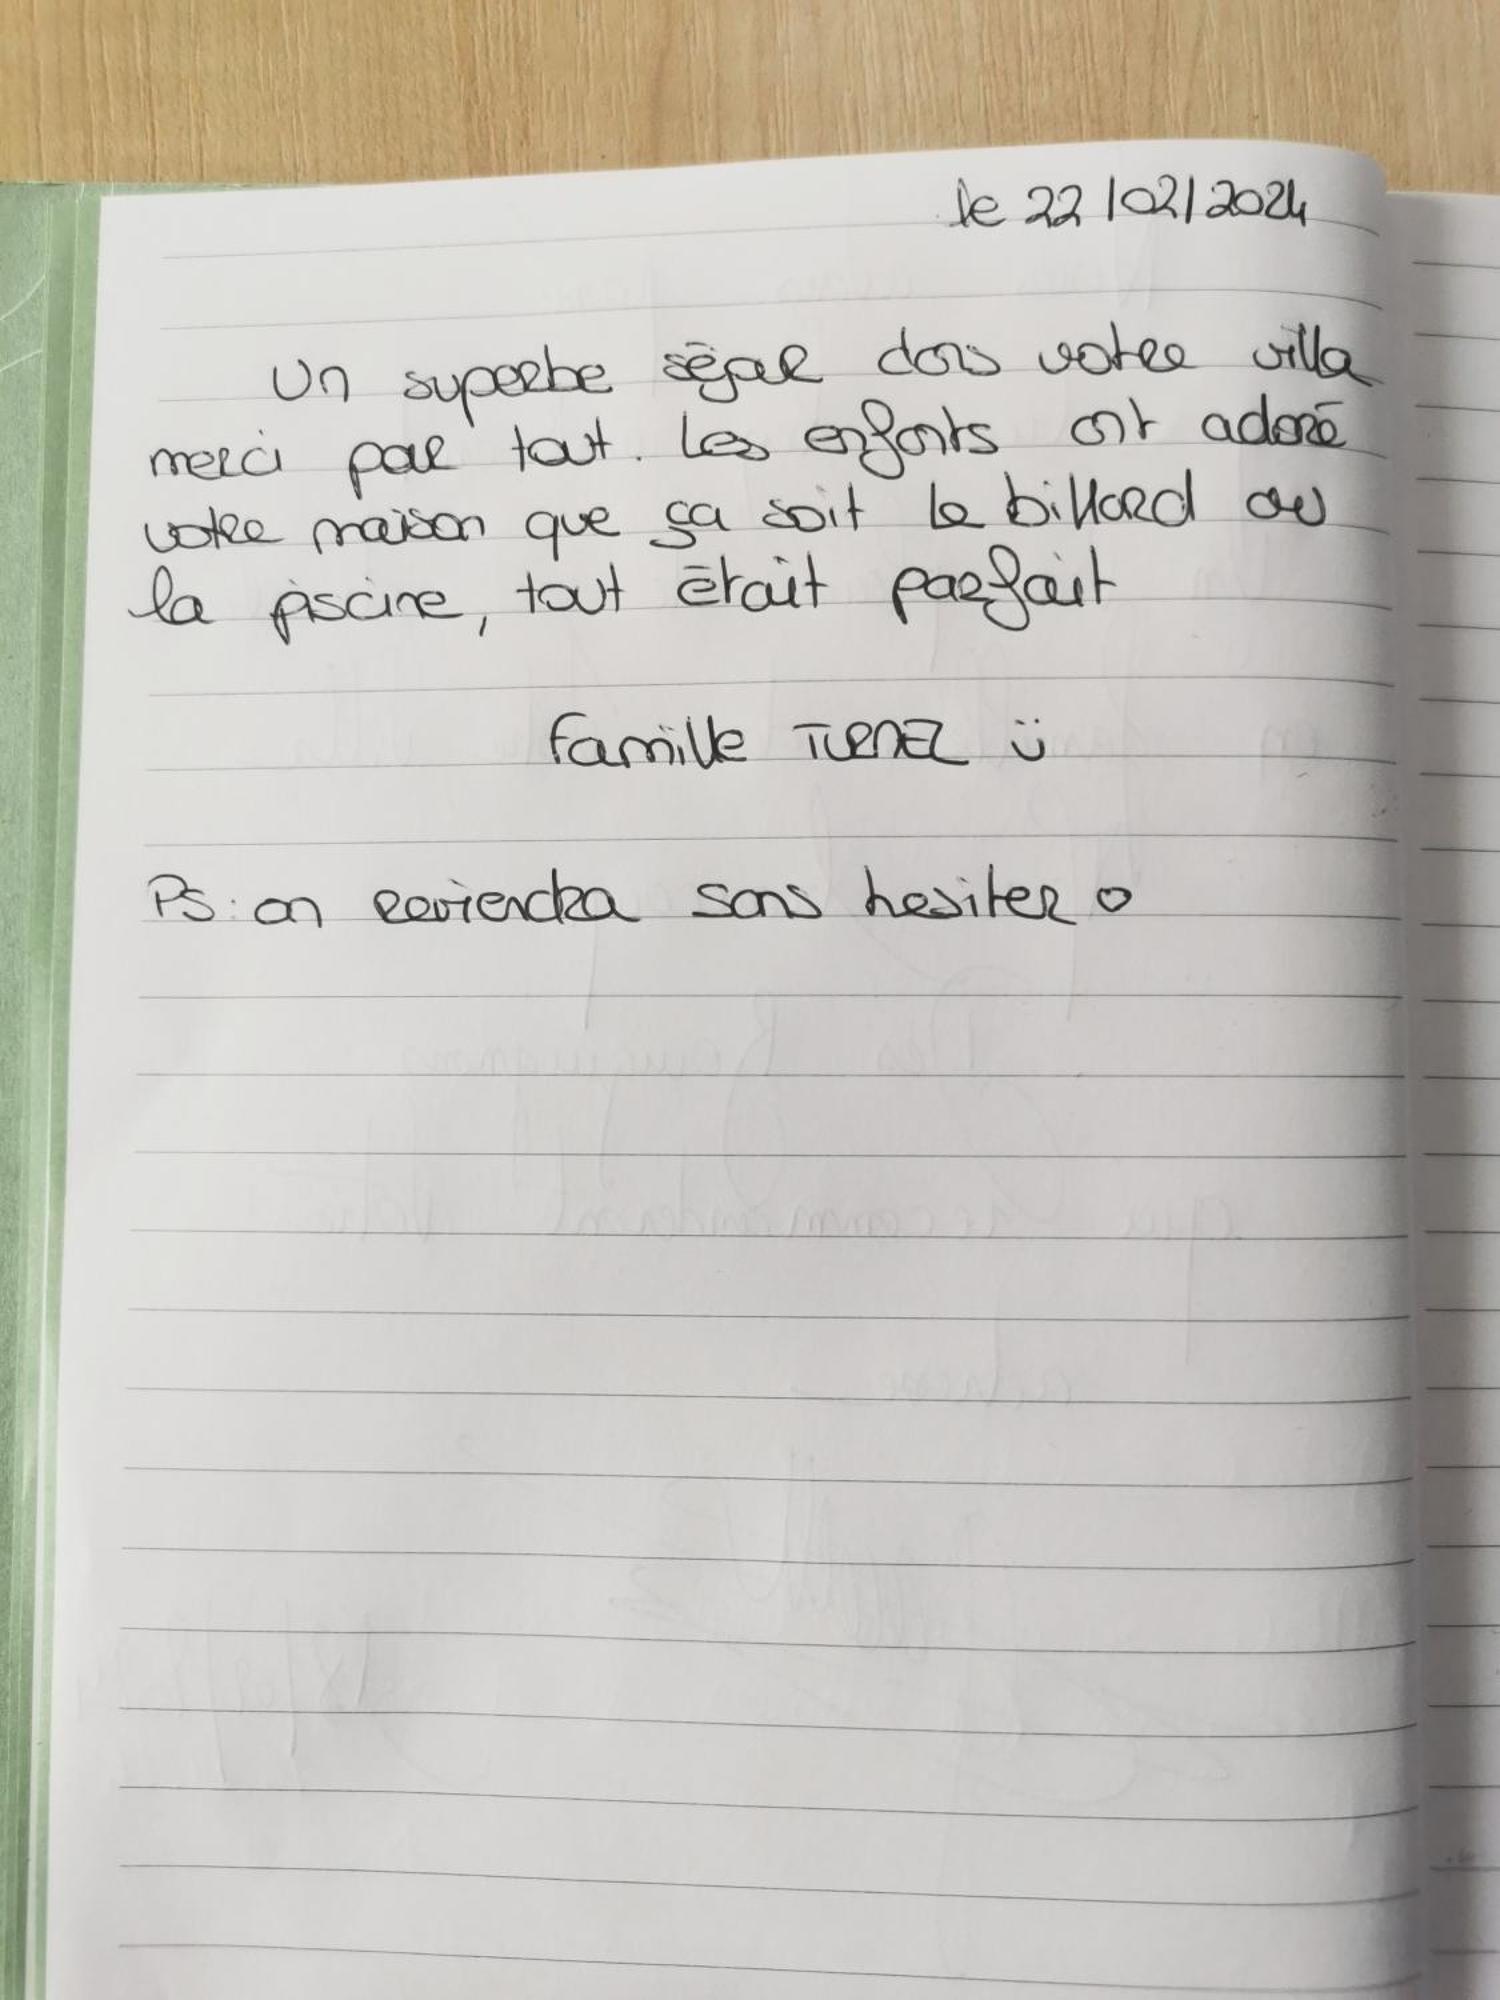 le 22/02/2024
Un superbe séjour dans votre villa
merci pour tout. Les enfants ont adoré
votre maison que ça soit le billard ou
la piscine, tout était parfait
famille TURNEL ü
PS : on reviendra sans hesiter ♡